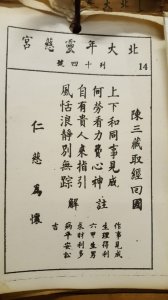 北大年靈慈宮
列十四號
14
陳三藏取經回國
上下和同事見成
何勞着力費心神
自有貴人來指引
風恬浪靜別無踪
註解
作事見成
生理得利
六甲生男
求財利多
病平安松
吉
仁慈為懷